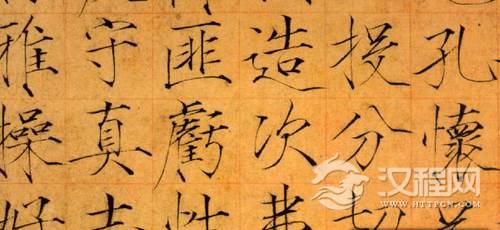 孔懷
投分切
造次弗
匪虧性
守真志
雅操好
汉程网
HTTPCN.COM